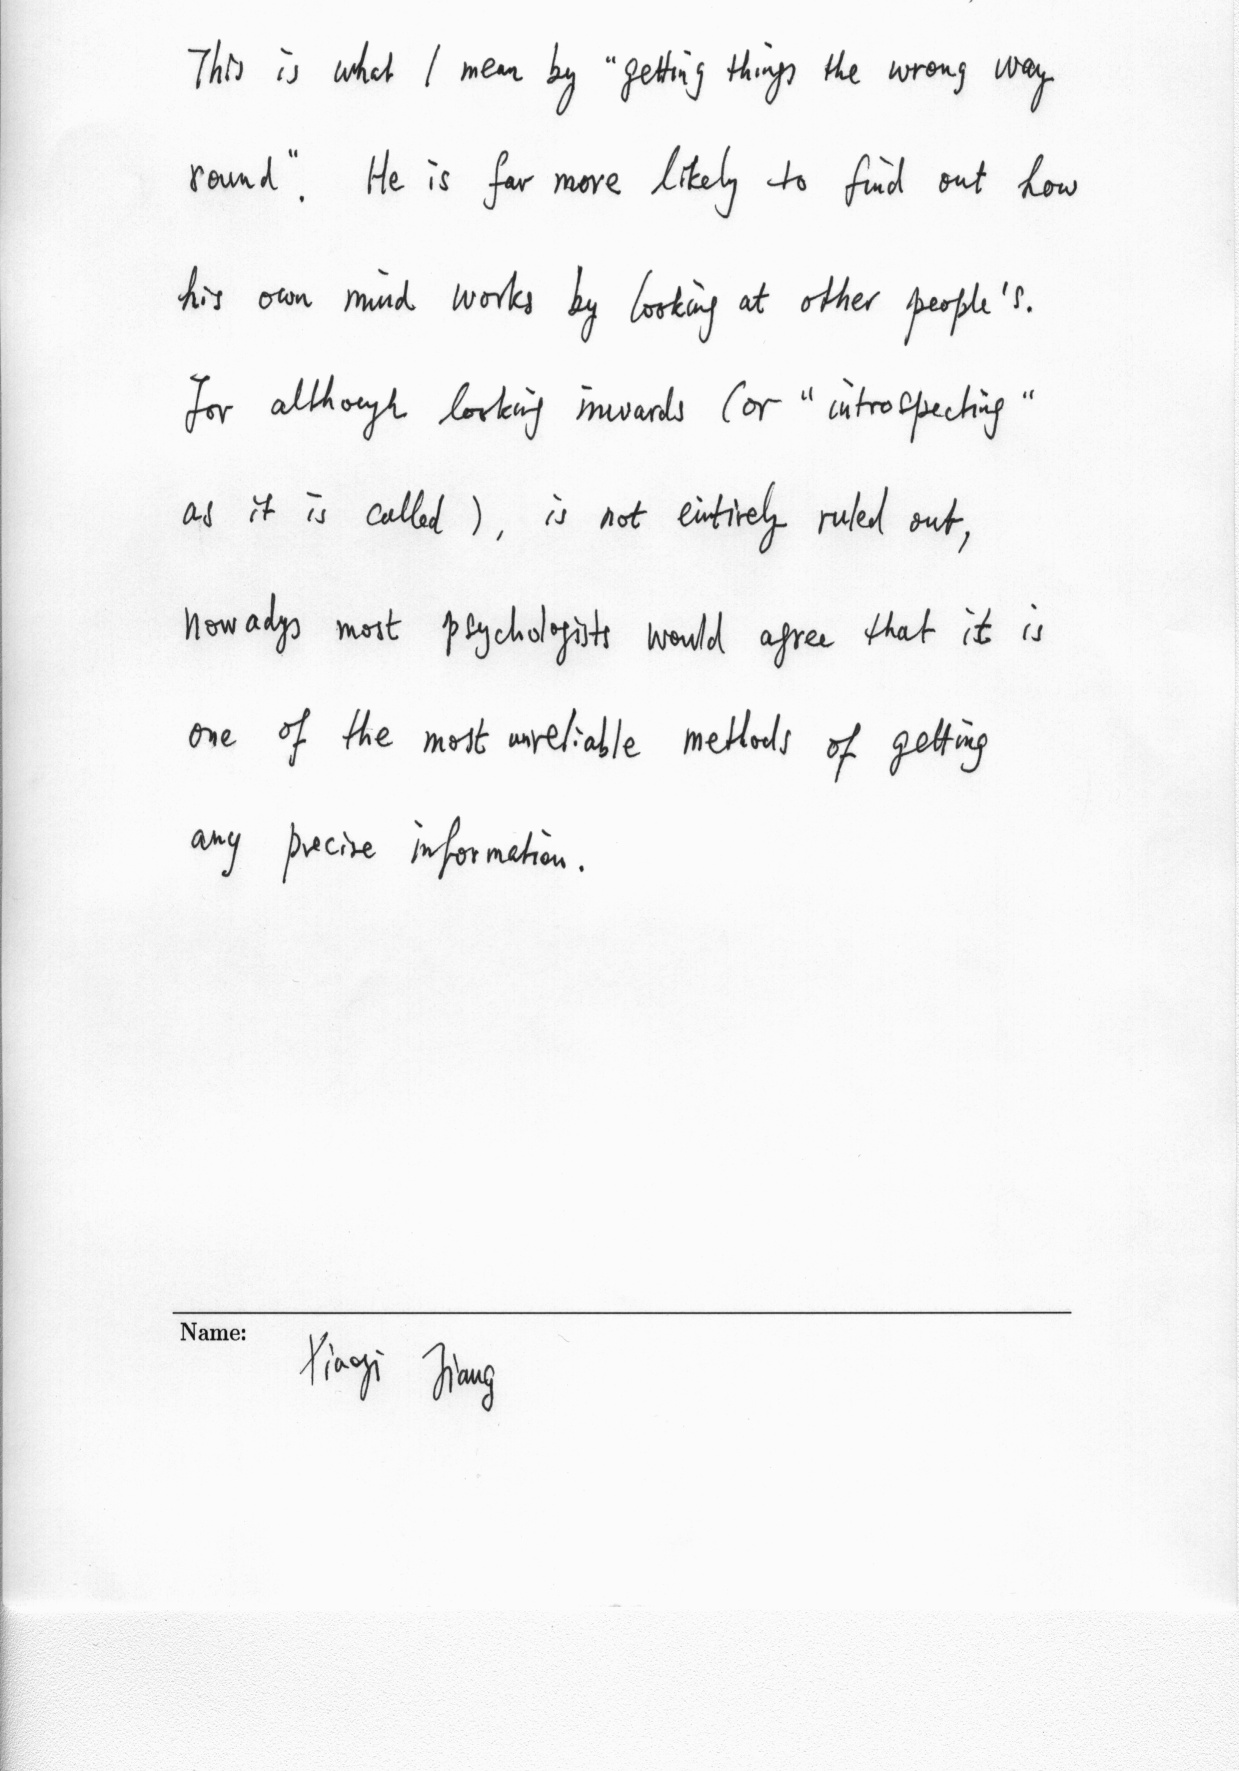 This is what I mean by "getting things the wrong way
round". He is far more likely to find out how
his own mind works by looking at other people's.
For although looking inwards (or "introspecting"
as it is called), is not entirely ruled out,
nowadys most psychologists would agree that it is
one of the most unreliable methods of getting
any precise information.
Name:
Xiaoyi Jiang